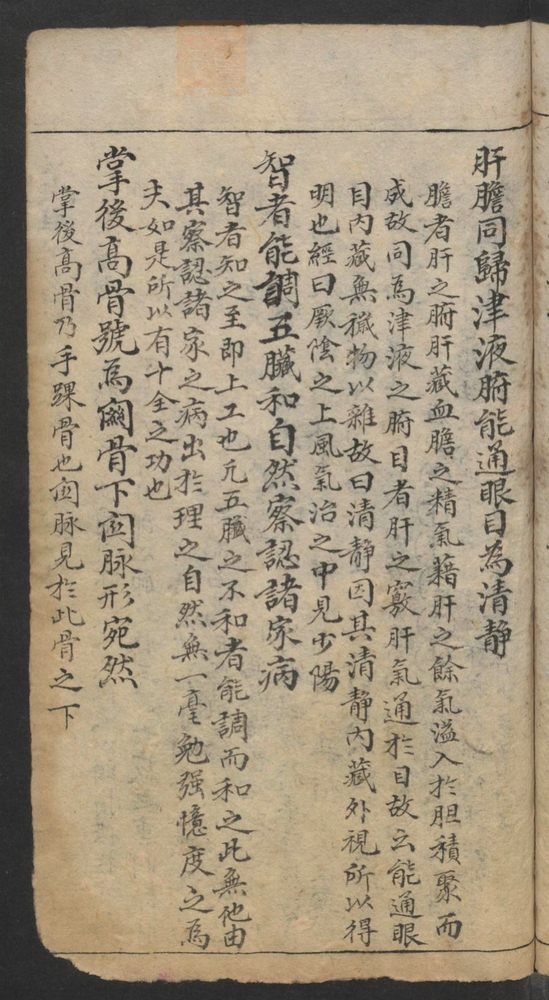 肝膽同歸津液腑能通眼目為清靜
膽者肝之腑肝藏血膽之精氣藉肝之餘氣溢入於胆積聚而
成故同為津液之腑目者肝之竅肝氣通於目故云能通眼
目內藏無穢物以雜故曰清靜因其清靜內藏外視所以得
明也經曰厥陰之上風氣治之中見少陽
智者能調五臟和自然察認諸家病
智者知之至即上工也凢五臟之不和者能調而和之此無他由
其察認諸家之病出於理之自然無一毫勉强憶度之為
夫如是所以有十全之功也
掌後高骨號為關骨下關脉形宛然
掌後高骨乃手踝骨也関脉見於此骨之下